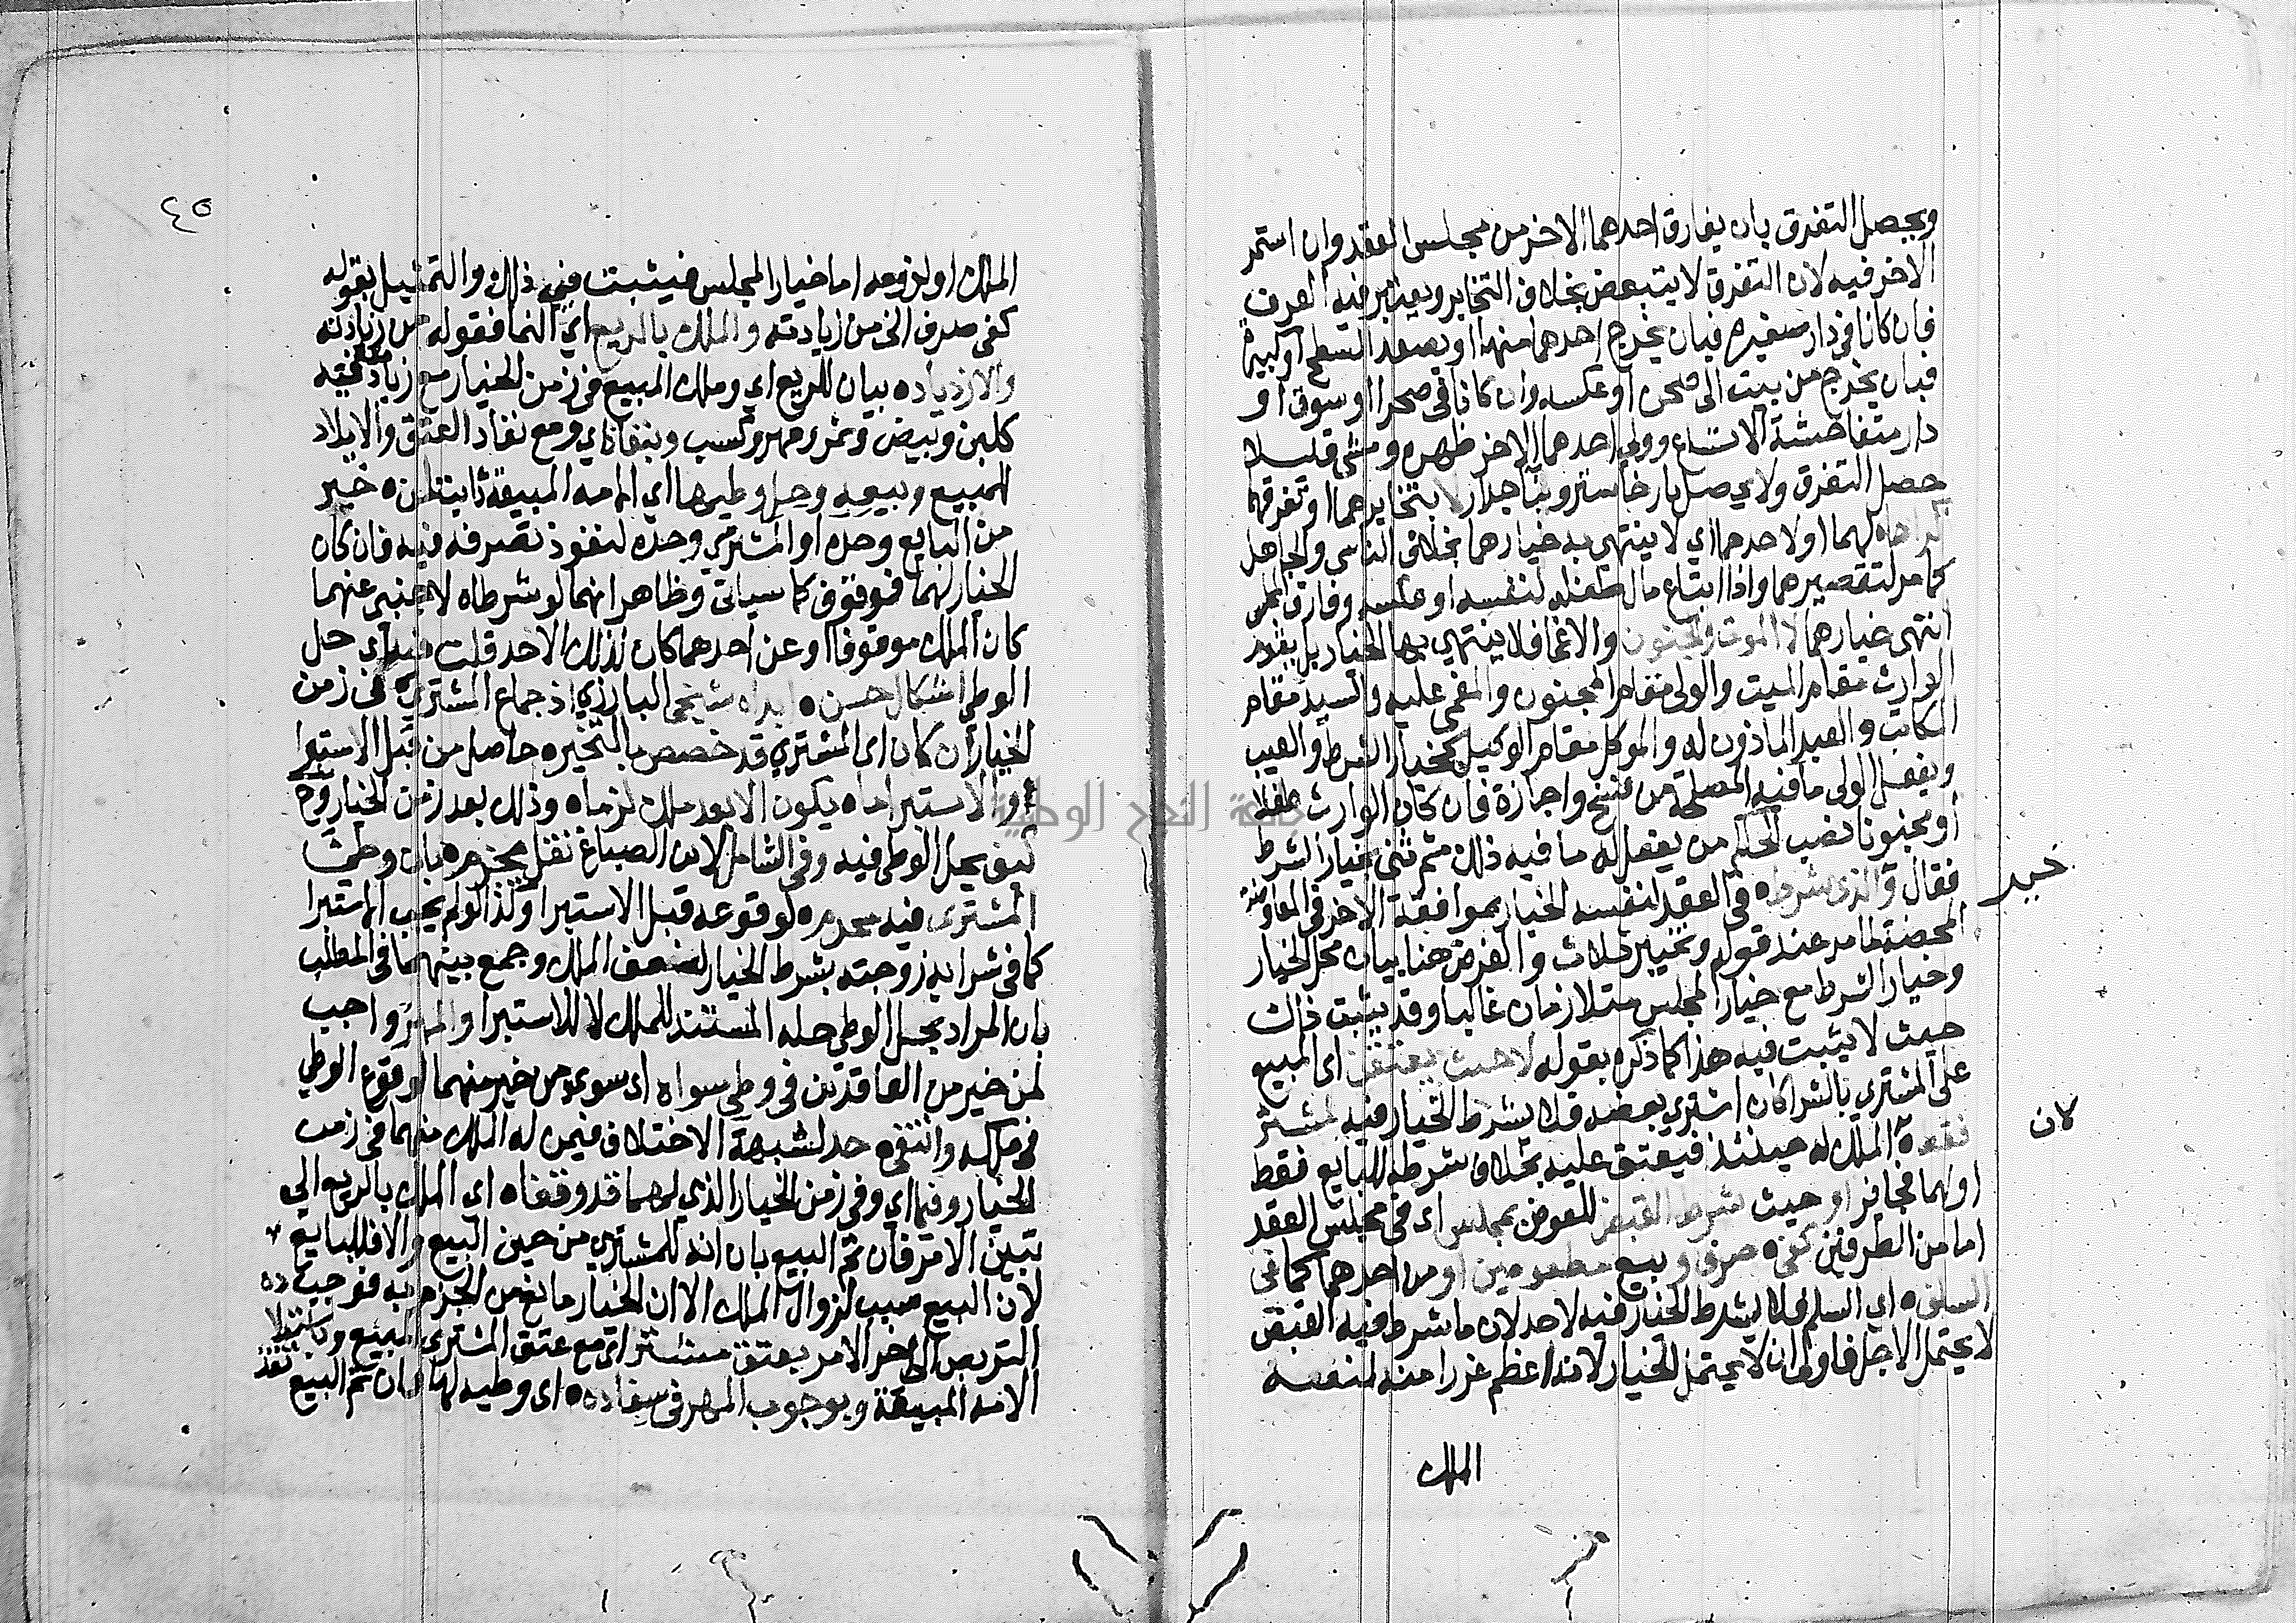 ويحصل التفرق بان يفارق احدهما الاخر من مجلس العقد وان استمر
الاخر فيه لان التفرق لا يتبعض بخلاف التخاير ويعتبر فيه العرف
فان كانا في دار صغيره فبان يخرج احدهما منها او يصعد السطح او كبيرة
فبان يخرج من بيت الى صحن او عكسه وان كانا في صحرا او سوق او
دار متفاحشة الاتساع وولى احدهما الاخر ظهره ومشى قليلا
حصل التفرق ولا يحصل بارخا ستر وبنا جدار لا بتخايرهما او تفرقهما
اكراها لهما او لاحدهما اي لا ينتهى به خيارهما بخلاف الناسي والجاهل
كما مر لتقصيرهما واذا ابتاع مال طفله لنفسه او عكسه وفارق المجلس
انتهى خيارهما لا الموت والجنون والاغما فلا ينتهي بها الخيار بل يقوم
الوارث مقام الميت والولى مقام المجنون والمغمى عليه والسيد مقام
المكاتب والعبد الماذون له والموكل مقام الوكيل كخيار الشرط والعيب
ويفعل الولى ما فيه المصلحة من فسخ واجازة فان كان الوارث طفلا
او مجنونا نصب الحاكم من يفعل له ما فيه ذلك ثم ثنى بخيار الشرط
فقال والذى شرطه في العقد لنفسه الخيار بموافقة الاخر في المعاوضة
خير
المحضة لما مر عند قوله وتخيير ثلاث والغرض هنا بيان محل الخيار
وخيار الشرط مع خيار المجلس متلازمان غالبا وقد يثبت ذاك
حيث لا يثبت فيه هذا كما ذكره بقوله لا حيث يعتقن اى المبيع
على المشتري بالشرا كان اشترى بعضه فلا يشرط الخيار فيه لمشتر
لان
فقط الملك له حينئذ فيعتق عليه بخلاف شرطه للبايع فقط
او لهما فجايز او حيث شرط القبض للعوض بمجلس اى في مجلس العقد
اما من الطرفين كفي صرف وبيع مطعومين او من احدهما كما في
السلف اى السلم فلا يشرط الخيار فيه لاحد لان ما شرط فيه القبض
لا يحتمل الاجل فاولى ان لا يحتمل الخيار لانه اعظم غررا منه لمنعه
الملك
٤٥
الملك او لزومه اما خيار المجلس فيثبت في ذلك والتمثيل بقوله
كفي صرف الى من زيادته والملك بالريع اي النما فقوله من زيادته
والازدياد بيان للريع اى وملك المبيع في زمن الخيار مع زياد منفعته
كلبن وبيض وثمر ومهر وكسب وبنفاذ اي ومع نفاذ العتق والايلاد
للمبيع وبيعه وحل وطيها اي الامه المبيعة ثابت لمن خير
من البايع وحده او المشتري وحده لنفوذ تصرفه فيه فان كان
الخيار لهما فموقوف كما سياتى وظاهر انهما لو شرطاه لاجنبي عنهما
كان الملك موقوفا او عن احدهما كان لذلك الاحد قلت فيه اي حل
الوطى اشكال حسن ابداه شيخي البارزي اذ جماع المشتري في زمن
الخيار ان كان اى المشتري قد خصص بالتخيره حاصل من قبل الاستبرا
اذ الاستبرا ما يكون الا بعد ملك لزماه وذلك بعد زمن الخيار وح
كيف يحل الوطى فيه وفى الشامل لابن الصباغ نقل يجزم بان وطئ
المشترى فيه محرم لوقوعه قبل الاستبرا ولذا لو لم يجب الاستبرا
كما في شرايه زوجته بشرط الخيار لضعف الملك وجمع بينهما في المطلب
بان المراد بحل الوطى حله المستند للملك لا للاستبرا والمهر واجب
لمن خير من العاقدين في وطي سواه اى سوى من خير منهما لوقوع الوطي
في ملكه وانتفى حد لشبهة الاختلاف فيمن له الملك منهما في زمن
الخيار وفى اي وفى زمن الخيار الذي لهما قد وقفناه اى الملك بالريع الي
تبين الامر فان تم البيع بان انه للمشتري من حين البيع والا فللبايع
لان البيع سبب لزوال الملك الا ان الخيار مانع من الجزم به فوجب
التربص الى اخر الامر بعتق مشتر اى مع عتق المشتري المبيع وباستيلاده
الامه المبيعة وبوجوب المهر في سفاده اى وطيه لها فان تم البيع نفذ
جامعة النجاح الوطنية